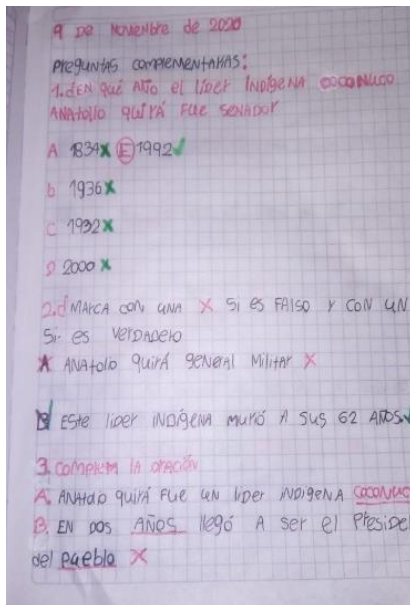 9 De Noviembre de 2020
Preguntas complementarias:
1. ¿EN qué Año el líder INDígeNA COCONUCO
ANAtolio quirá Fue SENADOR
A 1834 X E 1992 ✓
b 1936 X
C 1932 X
D 2000 X
2. ¿MARCA CON UNA X Si es FAlso Y CON UN
Si es VerDADero
X ANAtolio quirá general Militar X
B Este líder INDígeNA murió A Sus 62 AÑOS ✓
3. Completa lA orAción
A. ANAtolio quirá Fue UN líder INDigeNA COCONUCO
B. EN DOS AÑOS llegó A ser el Preside
del pueblo X